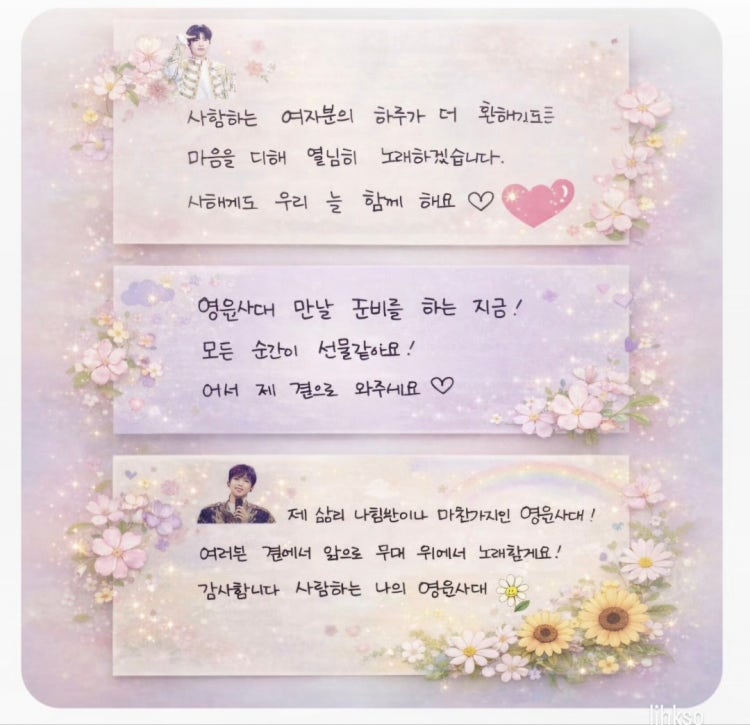 사함하는 여자분의 하루가 더 환해기도록
마음을 디해 열님히 노래하겠습니다.
사해게도 우리 늘 함께 해요 ♡
영윤사대 만날 준비를 하는 지금!
모든 순간이 선물같아요!
어서 제 곁으로 와주세요 ♡
제 삶리 나침반이나 마찬가지인 영윤사대!
여러분 곁에서 앞으로 무대 위에서 노래할게요!
감사합니다 사람하는 나의 영윤사대